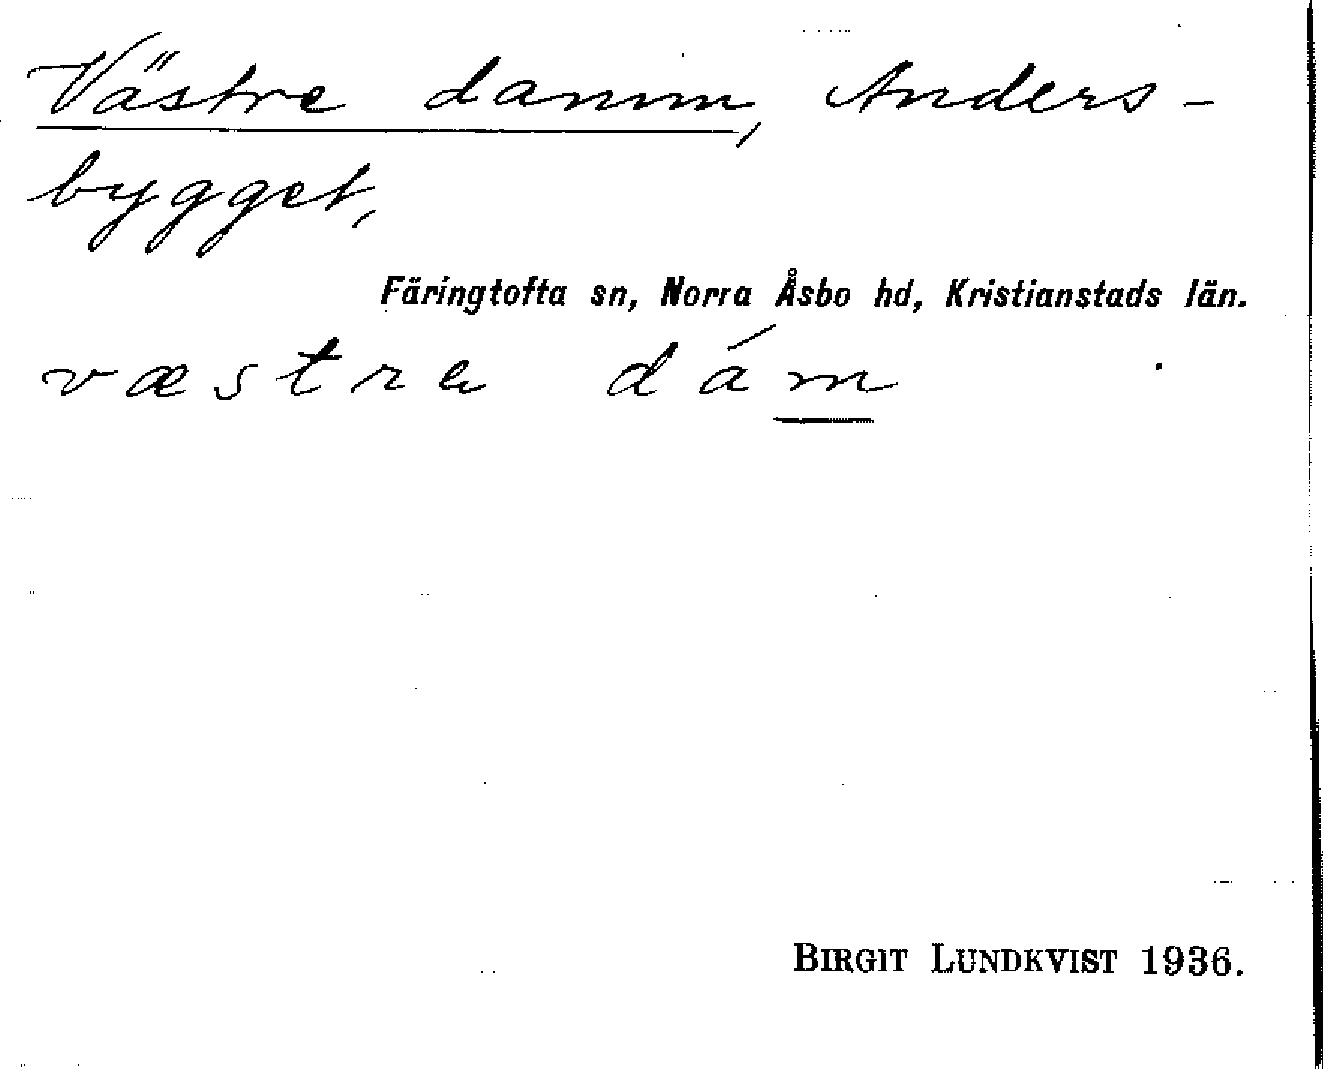 Västre damm, Anders-
bygget,
Färingtofta sn, Norra Åsbo hd, Kristianstads län.
væstrə dám
BIRGIT LUNDKVIST 1936.